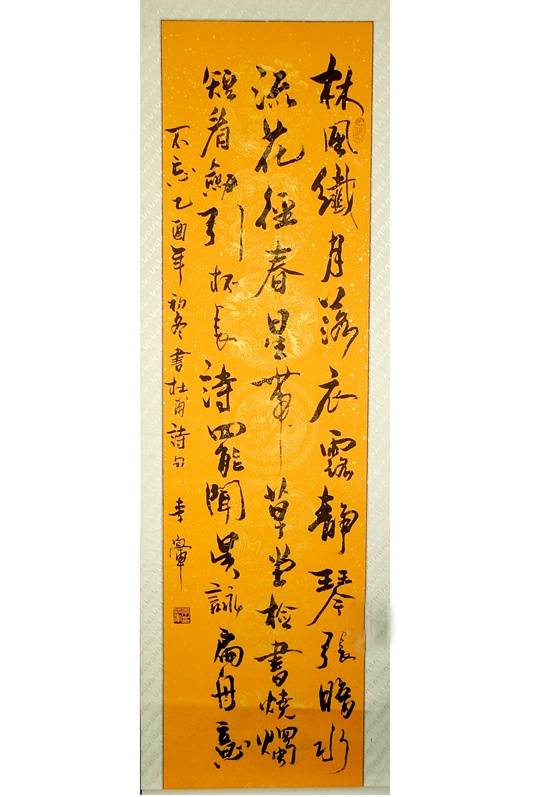 林風纖月落衣露靜琴張暗水
流花徑春星帶草堂檢書燒燭
短看劍引杯長詩罷聞吳詠扁舟意
不忘乙酉年初冬書杜甫詩句